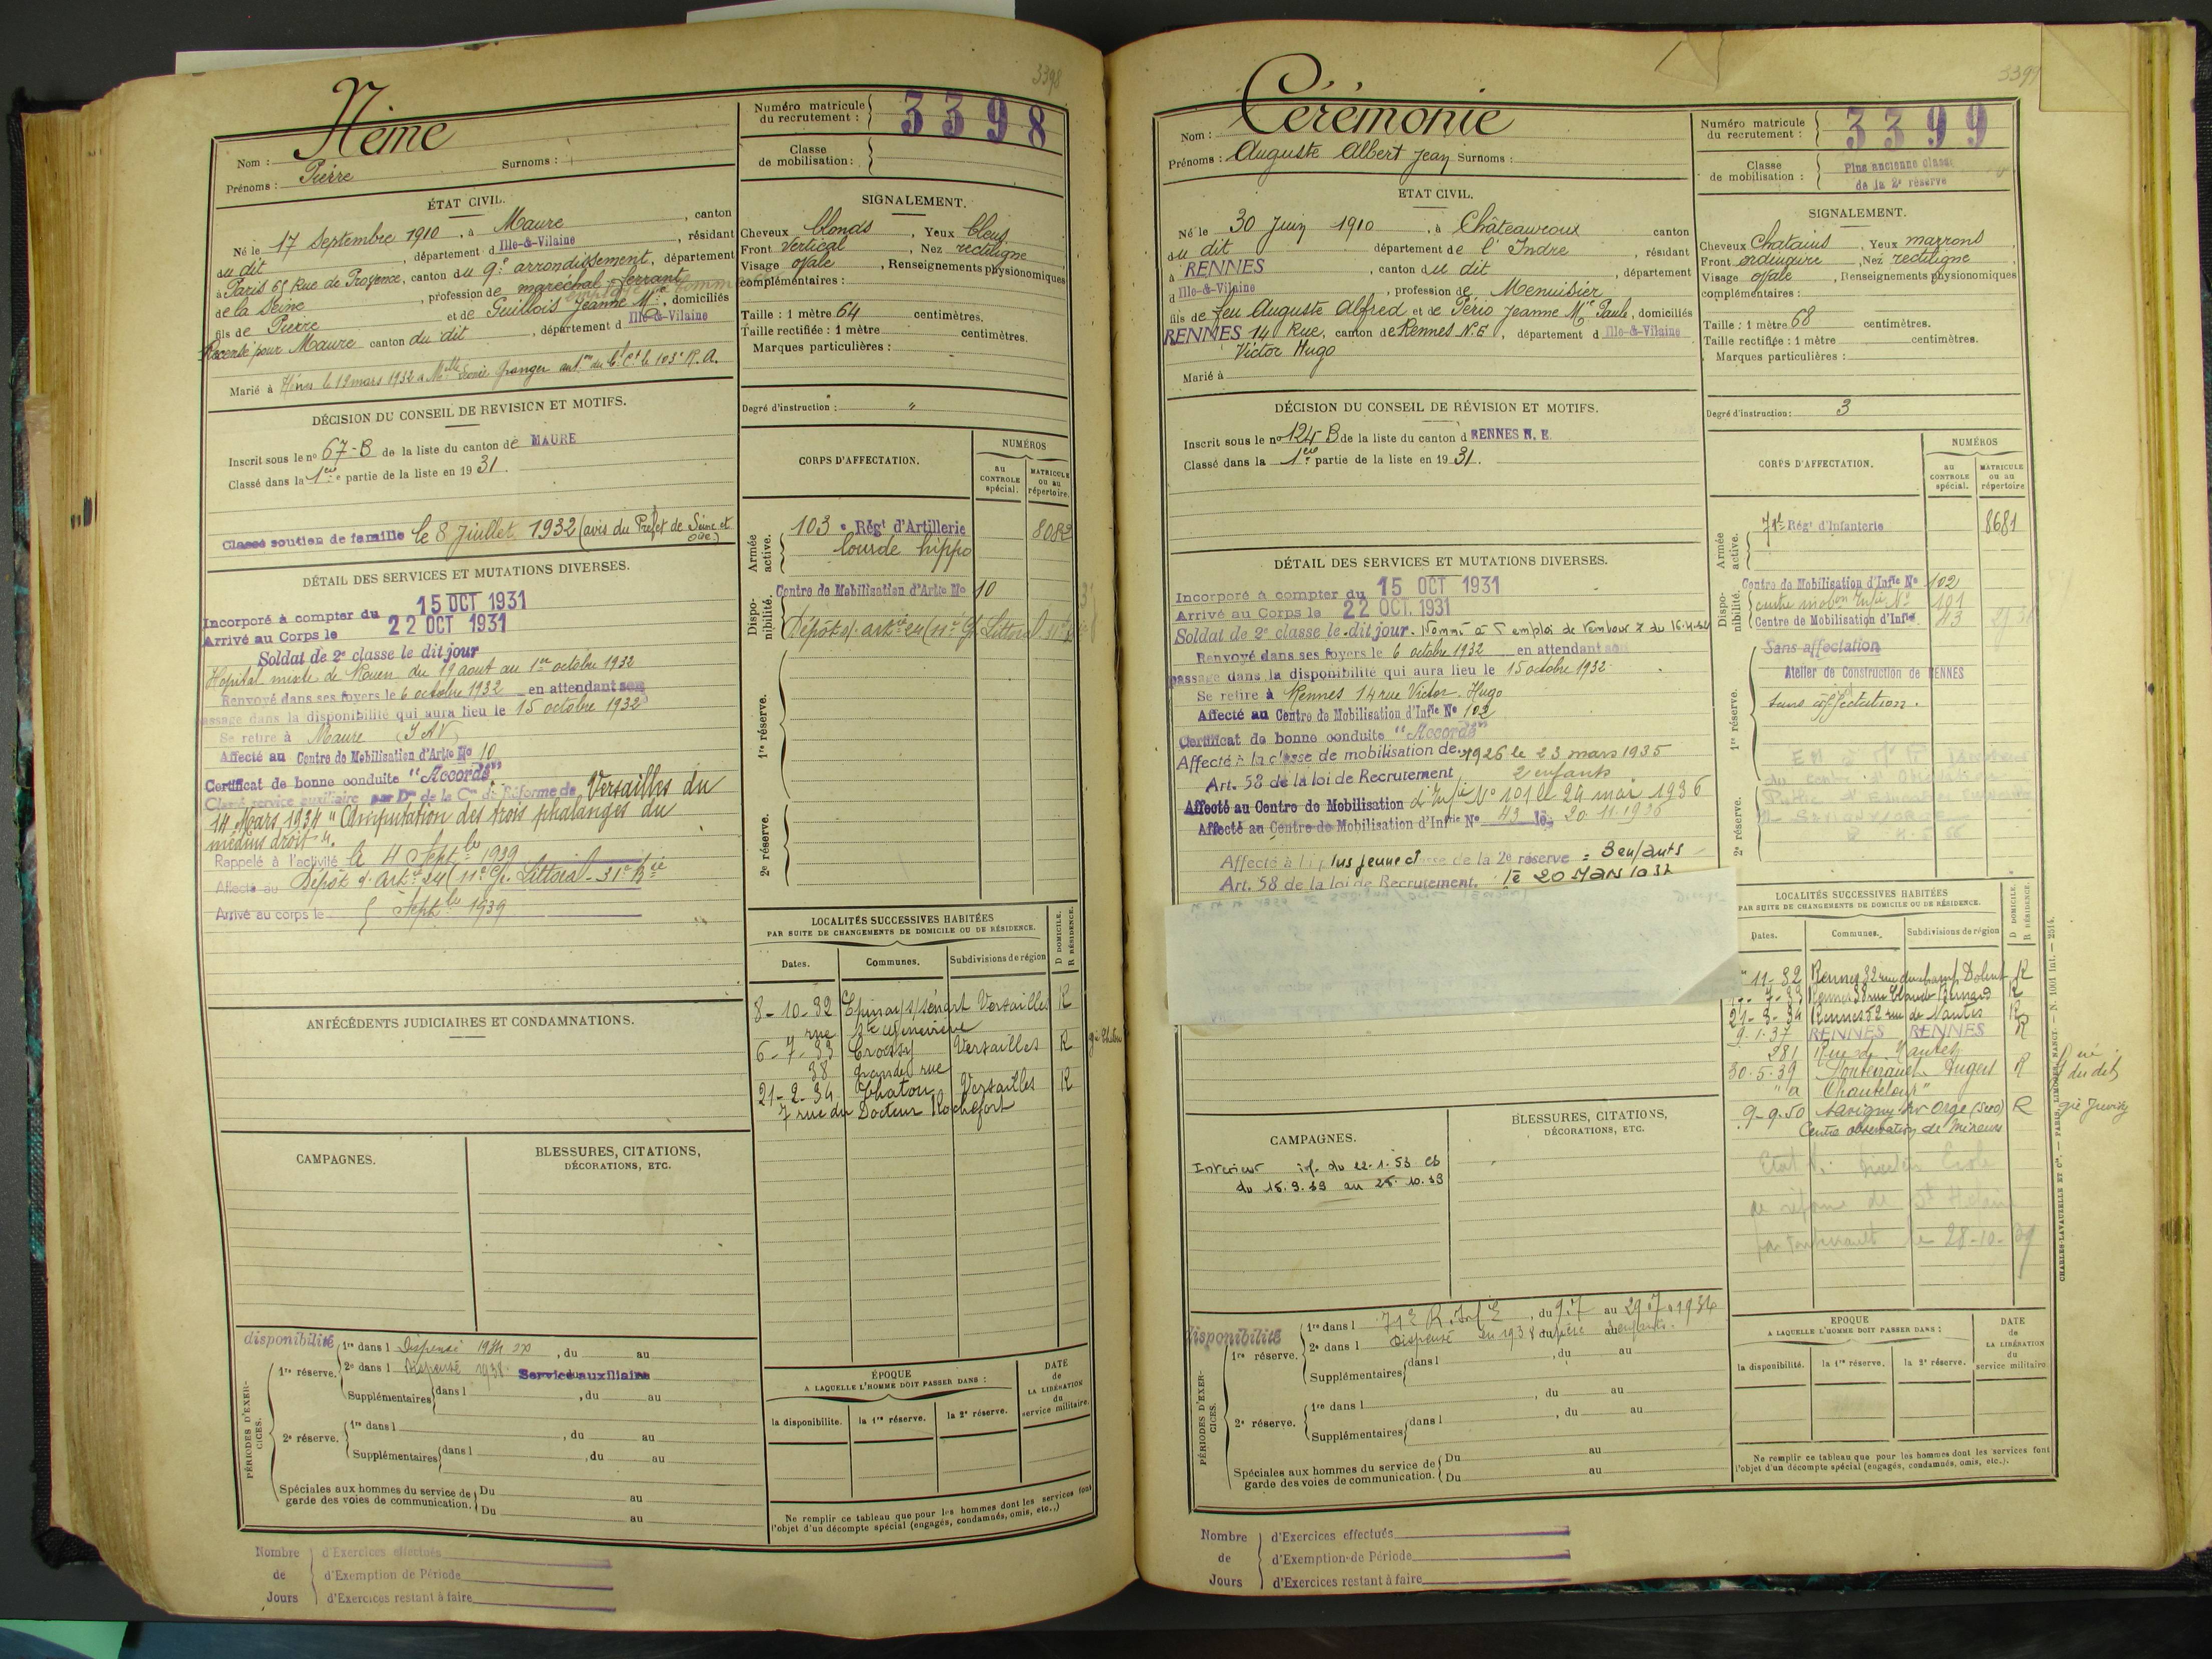 3398
Nom : Néme
Surnoms :
Prénoms : Pierre
Numéro matricule du recrutement : 3398
Classe de mobilisation :
ÉTAT CIVIL.
Né le 17 Septembre 1910, à Maure, canton
du dit, département d Ille-&-Vilaine, résidant
à Paris 65 Rue de Provence, canton du 9e arrondissement, département
de la Seine, profession de maréchal-ferrant
fils de Pierre et de Guillois Jeanne Mie, domiciliés
Recensé pour Maure canton du dit, département d Ille-&-Vilaine
Marié à le 12 mars 1932 à Melle Granger du 103e R.A.
SIGNALEMENT.
Cheveux blonds, Yeux bleus
Front vertical, Nez rectiligne
Visage ovale, Renseignements physionomiques
complémentaires :
Taille : 1 mètre 64 centimètres.
Taille rectifiée : 1 mètre centimètres.
Marques particulières :
Degré d'instruction : "
DÉCISION DU CONSEIL DE REVISION ET MOTIFS.
Inscrit sous le no 67-B de la liste du canton de MAURE
Classé dans la 1ere partie de la liste en 1931.
Classé soutien de famille le 8 Juillet 1932 (avis du Préfet de Seine et Oise)
DÉTAIL DES SERVICES ET MUTATIONS DIVERSES.
Incorporé à compter du 15 OCT 1931
Arrivé au Corps le 22 OCT 1931
Soldat de 2e classe le dit jour
Hopital mixte de Rouen du 19 aout au 1er octobre 1932
Renvoyé dans ses foyers le 6 octobre 1932 en attendant son
passage dans la disponibilité qui aura lieu le 15 octobre 1932
Se retire à Maure (I & V)
Affecté au Centre de Mobilisation d'Artie No 10
Certificat de bonne conduite "Accordé"
Classé service auxiliaire par Don de la Con de Réforme de Versailles du
14 Mars 1934 "Amputation des trois phalanges du
médius droit".
Rappelé à l'activité le 4 Septbre 1939
Affecté au Dépôt d'Artie 24 (11e Gpe Littoral - 31e Bie
Arrivé au corps le 5 Septbre 1939
CORPS D'AFFECTATION.
NUMÉROS
au CONTROLE spécial.
MATRICULE ou au répertoire.
Armée active.
103e Régt d'Artillerie 8082
lourde hippo
Disponibilité.
Centre de Mobilisation d'Artie No 10
Dépôt d'artie 24 (11e Gpe Littoral 31e
1re réserve.
2e réserve.
LOCALITÉS SUCCESSIVES HABITÉES
PAR SUITE DE CHANGEMENTS DE DOMICILE OU DE RÉSIDENCE.
Dates. Communes. Subdivisions de région D DOMICILE. R RÉSIDENCE.
8-10-32 Epinay s/ Sénart Versailles R
rue Ste Geneviève
6-7-33 Croissy Versailles R
38 grande rue
21-2-34 Chatou Versailles R
7 rue du Docteur Rochefort
ANTÉCÉDENTS JUDICIAIRES ET CONDAMNATIONS.
CAMPAGNES.
BLESSURES, CITATIONS, DÉCORATIONS, ETC.
PÉRIODES D'EXERCICES.
disponibilité
1re réserve.
1re dans l Dispensé 1934, du au
2e dans l Dispensé 1938 Service auxiliaire
Supplémentaires dans l, du au
2e réserve.
1re dans l, du au
Supplémentaires dans l, du au
Spéciales aux hommes du service de garde des voies de communication.
Du au
Du au
ÉPOQUE
A LAQUELLE L'HOMME DOIT PASSER DANS :
la disponibilité. la 1re réserve. la 2e réserve.
DATE de LA LIBÉRATION du service militaire.
Ne remplir ce tableau que pour les hommes dont les services font
l'objet d'un décompte spécial (engagés, condamnés, omis, etc..)
Nombre de Jours
d'Exercices effectués
d'Exemption de Période
d'Exercices restant à faire
3399
Nom : Cérémonie
Prénoms : Auguste Albert Jean Surnoms :
Numéro matricule du recrutement : 3399
Classe de mobilisation : Plus ancienne classe de la 2e réserve
ETAT CIVIL.
Né le 30 Juin 1910, à Châteauroux canton
du dit département de l'Indre, résidant
à RENNES, canton du dit, département
d Ille-&-Vilaine, profession de Menuisier
fils de feu Auguste Alfred et de Pério Jeanne Mie Paule, domiciliés
RENNES 14 Rue, canton de Rennes N.E, département d Ille-&-Vilaine
Victor Hugo
Marié à
SIGNALEMENT.
Cheveux Chatains, Yeux marrons
Front ordinaire, Nez rectiligne
Visage ovale, Renseignements physionomiques
complémentaires :
Taille : 1 mètre 68 centimètres.
Taille rectifiée : 1 mètre centimètres.
Marques particulières :
Degré d'instruction : 3
DÉCISION DU CONSEIL DE RÉVISION ET MOTIFS.
Inscrit sous le no 124 B de la liste du canton d RENNES N. E.
Classé dans la 1ere partie de la liste en 1931.
DÉTAIL DES SERVICES ET MUTATIONS DIVERSES.
Incorporé à compter du 15 OCT 1931
Arrivé au Corps le 22 OCT. 1931
Soldat de 2e classe le dit jour. Nommé à l'emploi de tambour
Renvoyé dans ses foyers le 6 octobre 1932 en attendant son
passage dans la disponibilité qui aura lieu le 15 octobre 1932
Se retire à Rennes 14 rue Victor Hugo
Affecté au Centre de Mobilisation d'Infie No 102
Certificat de bonne conduite "Accordé"
Affecté à la classe de mobilisation de 1926 le 23 mars 1935
Art. 58 de la loi de Recrutement 2 enfants
Affecté au Centre de Mobilisation d'Infie No 101 le 24 mai 1936
Affecté au Centre de Mobilisation d'Infie No 43 le 20.11.1936
Affecté à la plus jeune classe de la 2e réserve = 3 enfants
Art. 58 de la loi de Recrutement. le 20 MARS
CORPS D'AFFECTATION.
NUMÉROS
au CONTROLE spécial.
MATRICULE ou au répertoire
Armée active.
71e Régt d'Infanterie 8681
Disponibilité.
Centre de Mobilisation d'Infie No 102
centre mobon Infie No 101
Centre de Mobilisation d'Infie 43
1re réserve.
Sans affectation
Atelier de Construction de RENNES
sans affectation.
2e réserve.
LOCALITÉS SUCCESSIVES HABITÉES
PAR SUITE DE CHANGEMENTS DE DOMICILE OU DE RÉSIDENCE.
Dates. Communes. Subdivisions de région D DOMICILE. R RÉSIDENCE.
11-32 Rennes 32 rue du champ Dolent R
7-33 Rennes 38 rue Claude Bernard R
21-8-34 Rennes 52 rue de Nantes R
9.1.37 RENNES RENNES R
281 Rue de Nantes
30.5.39 Fontevrault Angers R
"à Chanteloup"
9-9-50 Savigny sur Orge (S et O) R
Centre observation de Mineurs
le 28-10-39
CAMPAGNES.
Intérieur inf. du 22.1.53
du 16.9.39 au 26.10.39
BLESSURES, CITATIONS, DÉCORATIONS, ETC.
PÉRIODES D'EXERCICES.
disponibilité
1re réserve.
1re dans l 71e R. Inf, du 9.7 au 29.7.1934
2e dans l Dispensé en 1938 père 3 enfants.
Supplémentaires dans l, du au
2e réserve.
1re dans l, du au
Supplémentaires dans l, du au
Spéciales aux hommes du service de garde des voies de communication.
Du au
Du au
EPOQUE
A LAQUELLE L'HOMME DOIT PASSER DANS :
la disponibilité. la 1re réserve. la 2e réserve.
DATE de LA LIBÉRATION du service militaire
Ne remplir ce tableau que pour les hommes dont les services font
l'objet d'un décompte spécial (engagés, condamnés, omis, etc.).
CHARLES-LAVAUZELLE ET Cie. — PARIS, LIMOGES, NANCY. — N. 1001 Int. — 2514.
Nombre de Jours
d'Exercices effectués
d'Exemption de Période
d'Exercices restant à faire